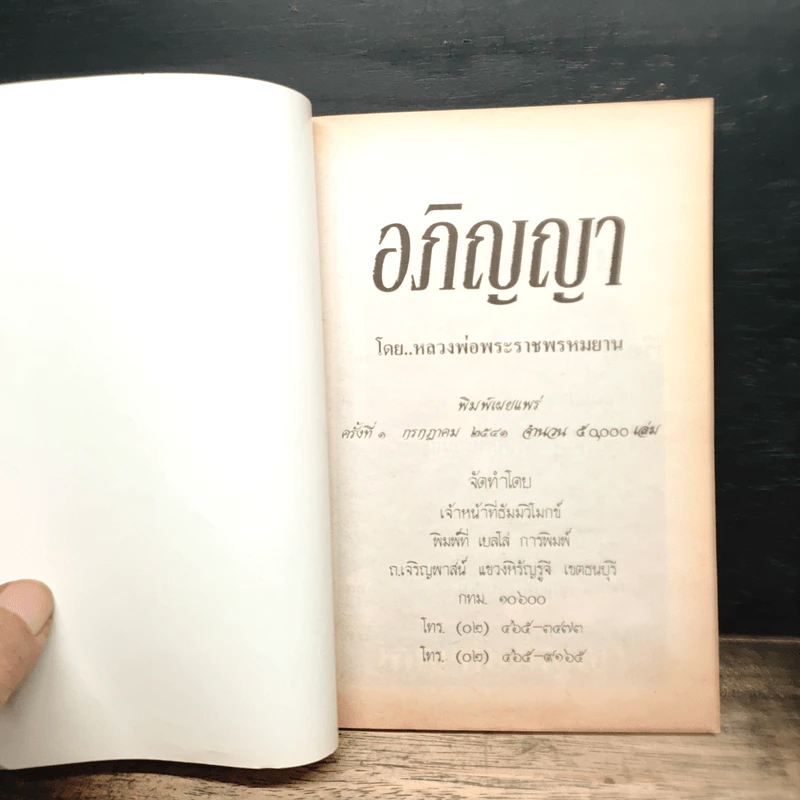 อภิญญา
โดย..หลวงพ่อพระราชพรหมยาน
พิมพ์เผยแพร่
ครั้งที่ ๑ กรกฎาคม ๒๕๔๑ จำนวน ๕๐,๐๐๐ เล่ม
จัดทำโดย
เจ้าหน้าที่ธัมมวิโมกข์
พิมพ์ที่ เยลโล่ การพิมพ์
ถ.เจริญพาสน์ แขวงหิรัญรูจี เขตธนบุรี
กทม. ๑๐๖๐๐
โทร. (๐๒) ๔๖๕-๓๔๗๓
โทร. (๐๒) ๔๖๕-๙๑๖๕